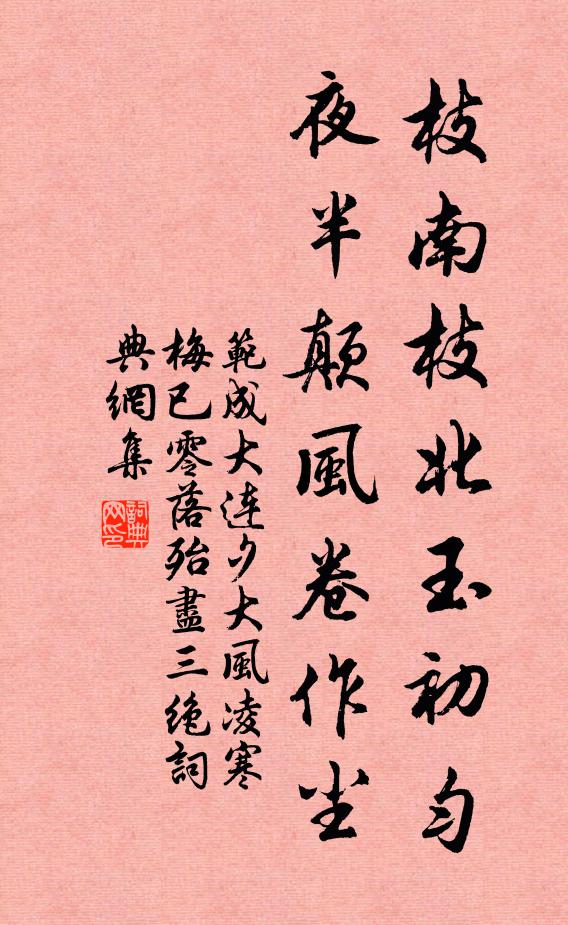 枝南枝北玉初勻
夜半顛風卷作尘
範成大连夕大風凌寒
梅已零落殆盡三绝詞
典網集
詞典網印